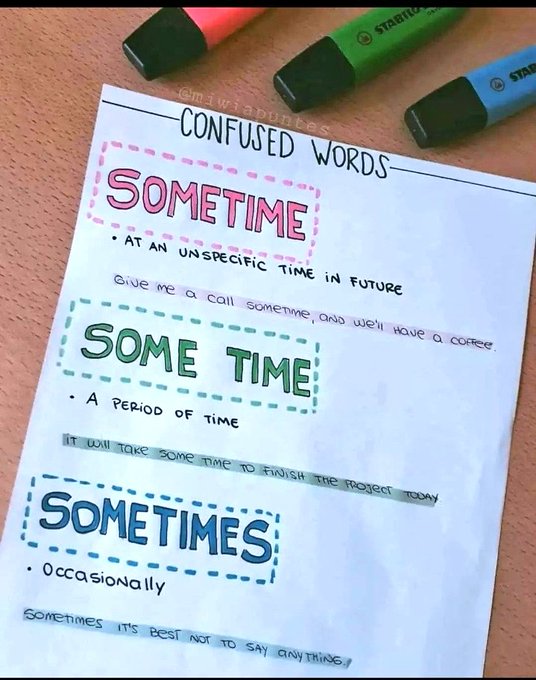 STABILO
STAB
@miwiapuntes
CONFUSED WORDS
SOMETIME
• AT AN UNSPECIFIC TIME IN FUTURE
Give me a call sometime, and we'll have a coffee.
SOME TIME
• A PERIOD OF TIME
IT WILL TAKE SOME TIME TO FINISH THE PROJECT TODAY
SOMETIMES
• Occasionally
SOMETIMES IT'S BEST NOT TO SAY ANYTHING.